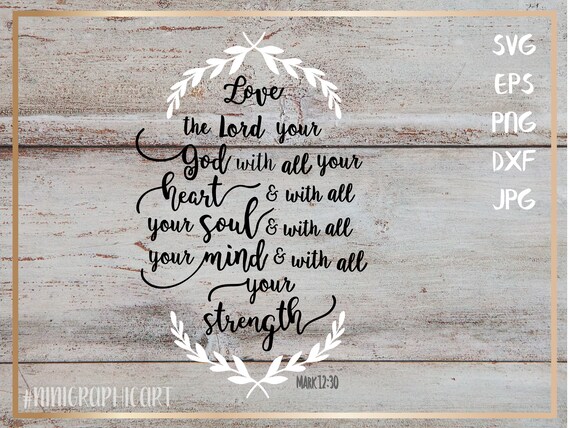 Love
the Lord your
God with all your
heart & with all
your soul & with all
your mind & with all
your
strength
MARK 12:30
SVG
EPS
PNG
DXF
JPG
#NINIGRAPHICART